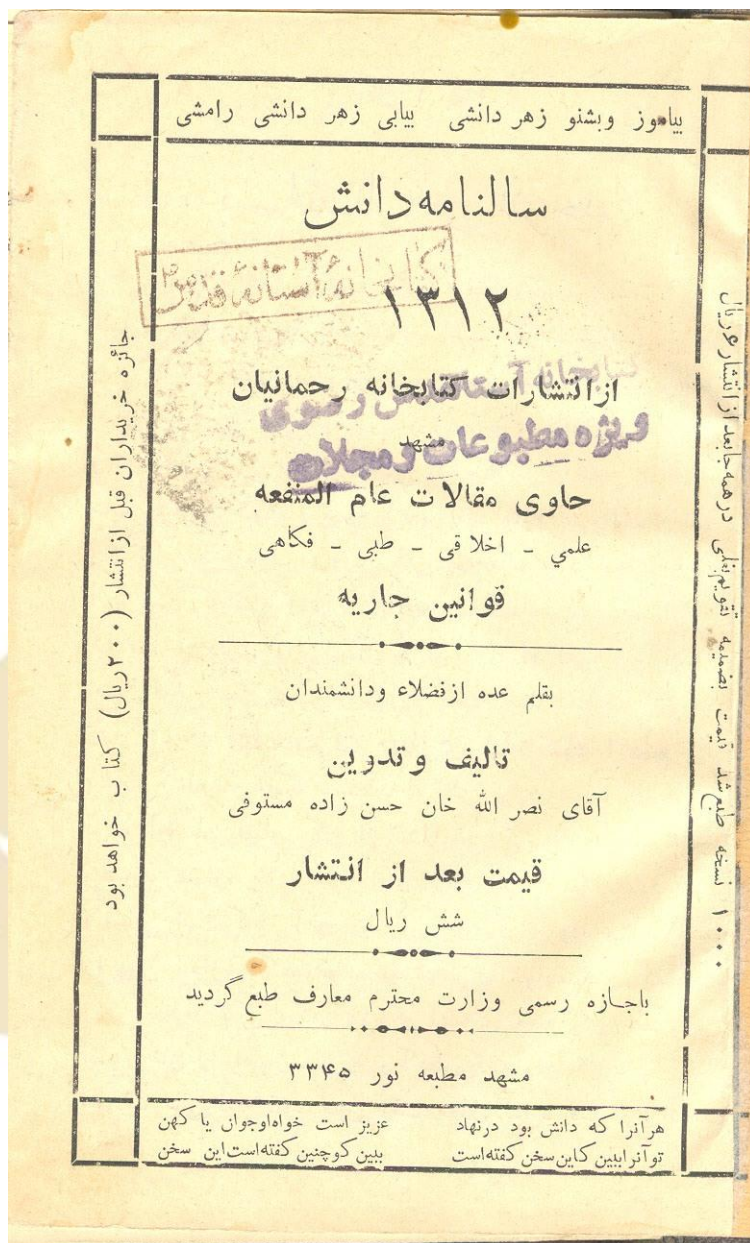 بیاموز وبشنو زهر دانشی بیابی زهر دانشی رامشی
سالنامه دانش
کتابخانهٔ آستانهٔ قدس
۱۳۱۲
از انتشارات کتابخانه رحمانیان
کتابخانه آستانقدس رضوی
مشهد
ویژه مطبوعات و مجلات
حاوی مقالات عام المنفعه
علمي - اخلاقی - طبی - فکاهی
قوانین جاریه
بقلم عده از فضلاء ودانشمندان
تالیف و تدوین
آقای نصر الله خان حسن زاده مستوفی
قیمت بعد از انتشار
شش ریال
باجازه رسمی وزارت محترم معارف طبع گردید
مشهد مطبعه نور ۳۳۴۵
هرآنرا که دانش بود درنهاد عزیز است خواه‌اوجوان یا کهن
توآنرا ببین کاین سخن گفته‌است ببین کوچنین گفته‌است‌این سخن
۱۰۰۰ نسخه طبع شد قیمت بضمیمه تقویم بغلی در همه جا بعد از انتشار ۶ ریال
جائزه خریداران قبل از انتشار (۲۰۰ ریال) کتاب خواهد بود